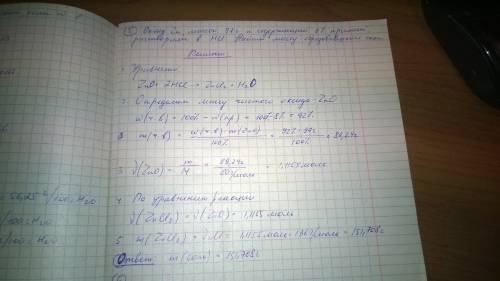 ⑤ Оксид Zn массой 97г и содержащий 8% примесей
растворили в HCl. Найти массу образовавшейся соли
Решение
1. Уравнение
ZnO + 2HCl → ZnCl₂ + H₂O
2. Определяем массу чистого оксида ZnO
ω(ч.в) = 100% - ω(пр) = 100% - 8% = 92%
m(ч.в) = ω(ч.в)·m(ZnO) / 100% = 92%·97г / 100% = 89,24г
3. ν(ZnO) = m / M = 89,24г / 80г/моль = 1,1155моль
4. По уравнению реакции
ν(ZnCl₂) = ν(ZnO) = 1,1155 моль
5. m(ZnCl₂) = ν·M = 1,1155моль·136г/моль = 151,708г
Ответ: m(соли) = 151,708г
H₂O
=H₂O
=H₂O